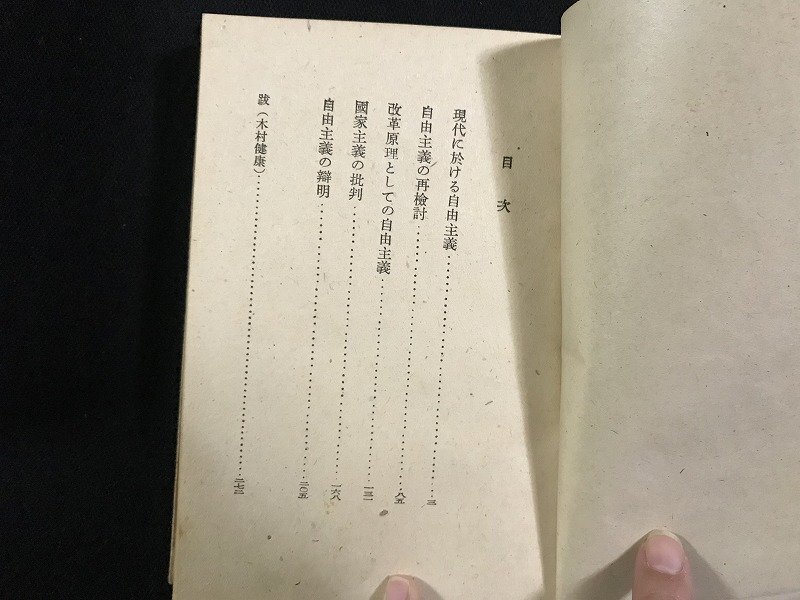 目次
現代に於ける自由主義……三
自由主義の再檢討……八五
改革原理としての自由主義……一三一
國家主義の批判……一六八
自由主義の辯明……二〇五
跋（木村健康）……二七三